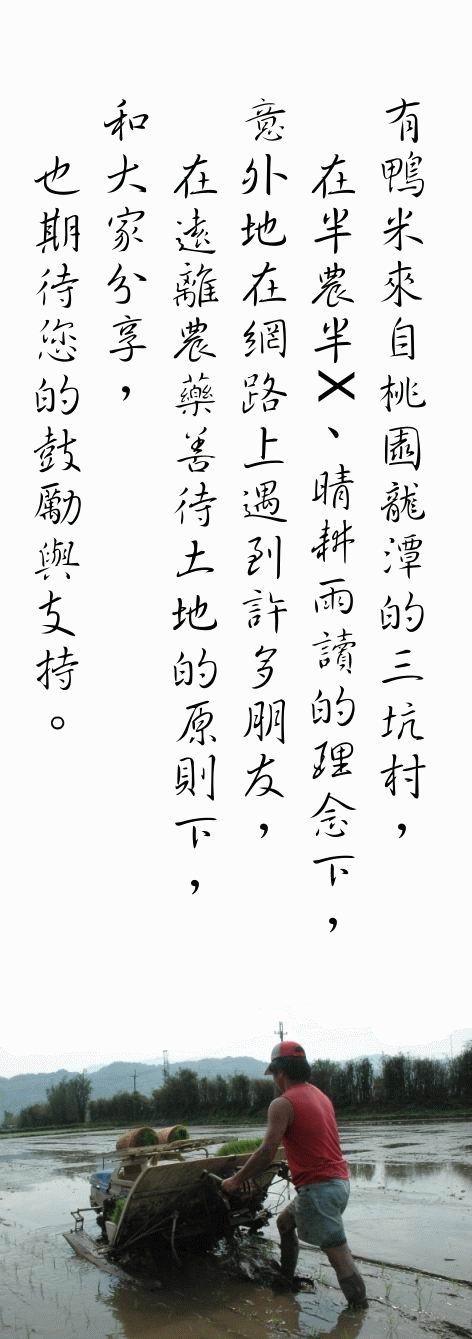 有鴨米來自桃園龍潭的三坑村，
在半農半X、晴耕雨讀的理念下，
意外地在網路上遇到許多朋友，
在遠離農藥善待土地的原則下，
和大家分享，
也期待您的鼓勵與支持。